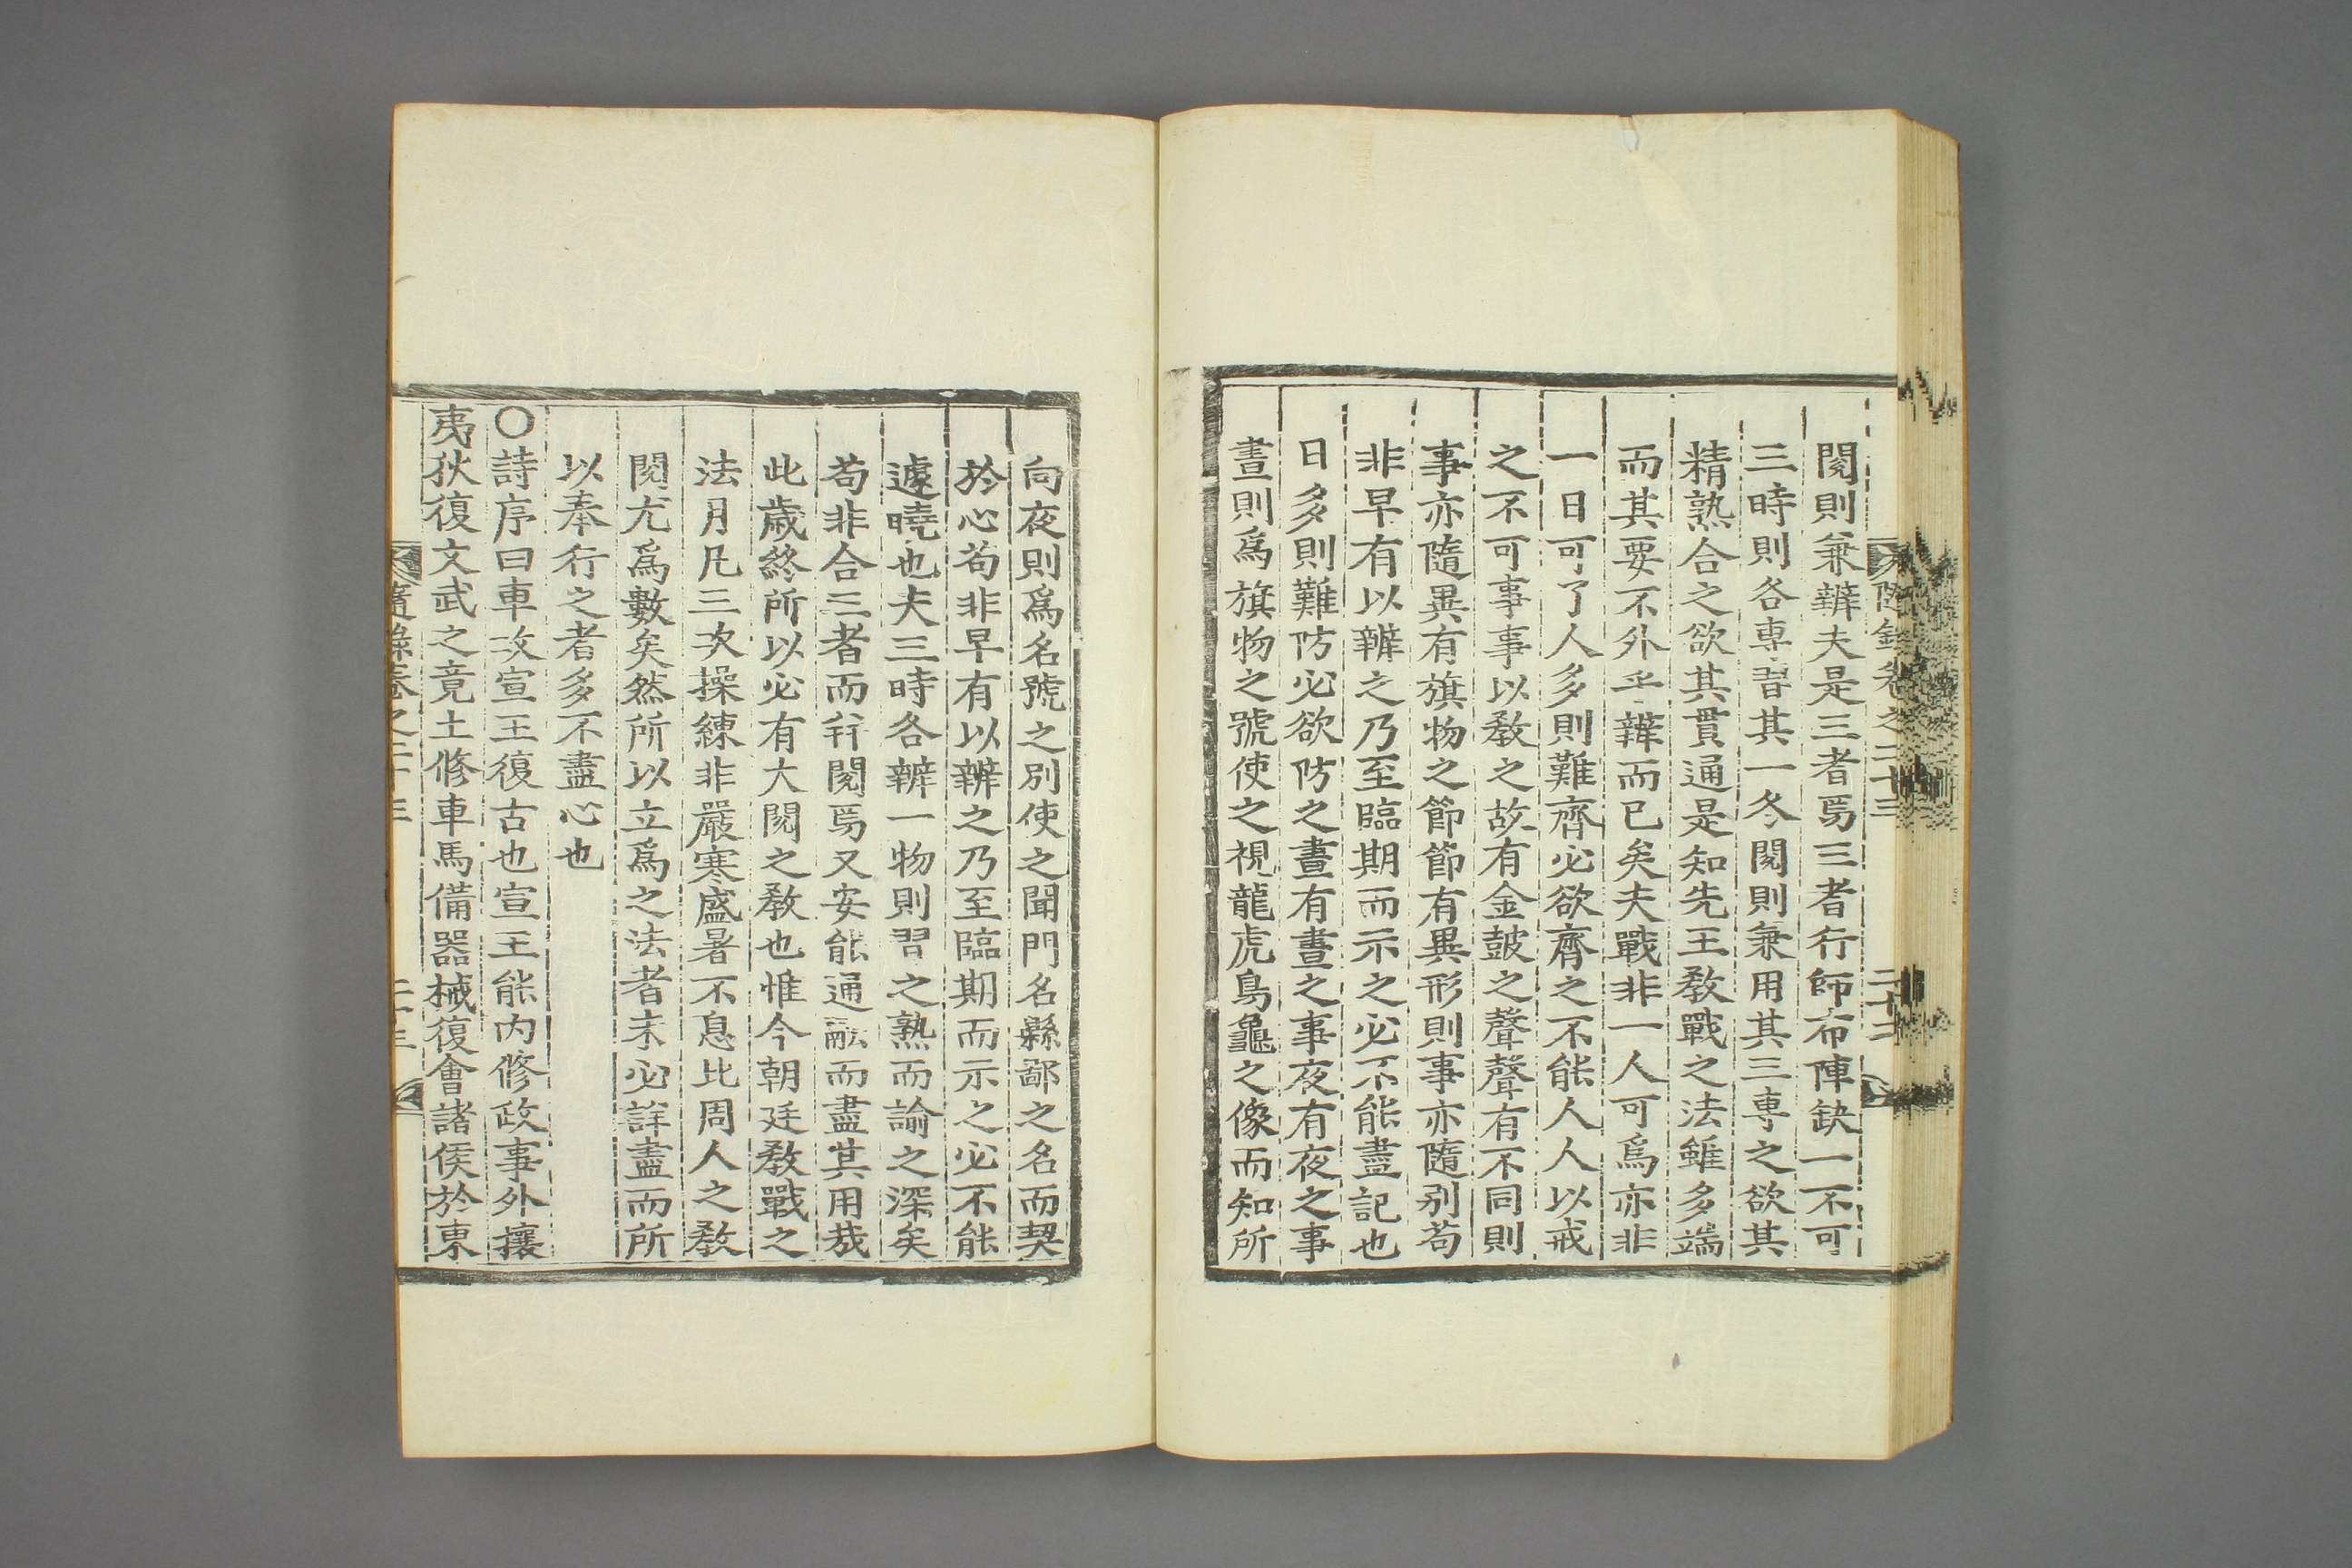 隨錄卷之二十三 二十二
閱則兼辨夫是三者焉三者行師布陣缺一不可
三時則各專習其一冬閱則兼用其三專之欲其
精熟合之欲其貫通是知先王教戰之法雖多端
而其要不外乎辨而已矣夫戰非一人可爲亦非
一日可了人多則難齊必欲齊之不能人人以戒
之不可事事以教之故有金鼓之聲聲有不同則
事亦隨異有旗物之節節有異形則事亦隨別苟
非早有以辨之乃至臨期而示之必不能盡記也
日多則難防必欲防之晝有晝之事夜有夜之事
晝則爲旗物之號使之視龍虎鳥龜之像而知所
向夜則爲名號之別使之聞門名縣鄙之名而契
於心苟非早有以辨之乃至臨期而示之必不能
遽曉也夫三時各辨一物則習之熟而諭之深矣
苟非合三者而幷閱焉又安能通融而盡其用哉
此歲終所以必有大閱之教也惟今朝廷教戰之
法月凡三次操練非嚴寒盛暑不息比周人之教
閱尤爲數矣然所以立爲之法者未必詳盡而所
以奉行之者多不盡心也
○詩序曰車攻宣王復古也宣王能內修政事外攘
夷狄復文武之竟土修車馬備器械復會諸侯於東
隨錄卷之二十三 二十三